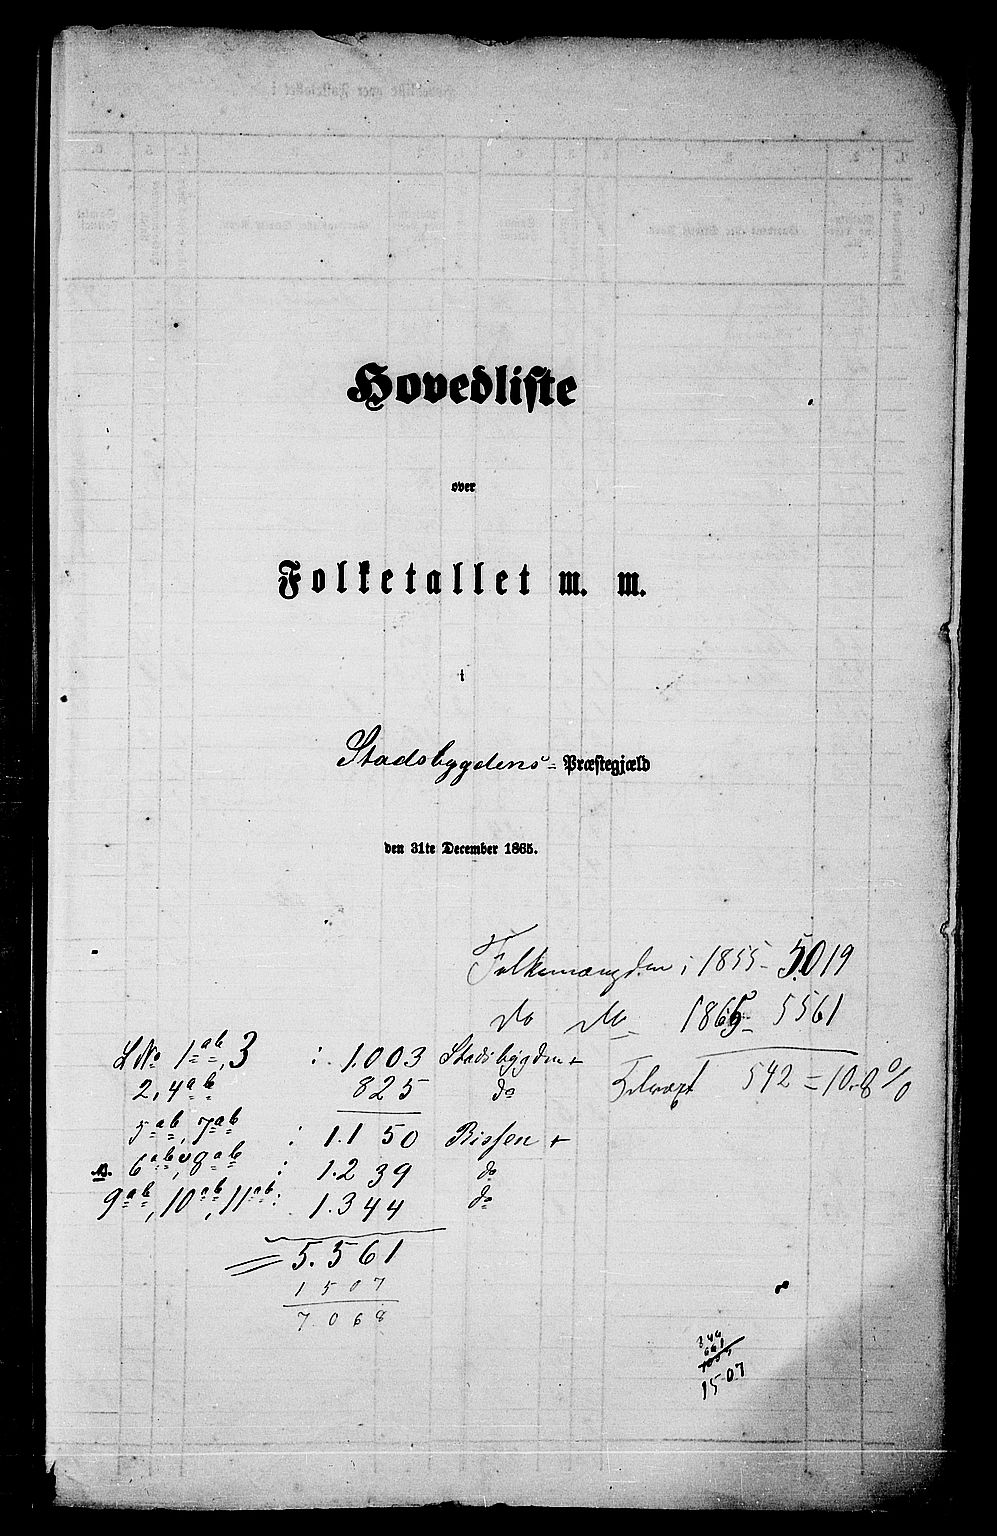 Hovedliste
over
Folketallet m. m.
i
Stadsbygdens- Præstegjæld
den 31te December 1865.
Folkemængden i 1855 - 5.019
do do 1865 - 5561
Tilvæxt 542 = 10.8 %
LNo 1ab, 3 : 1.003 Stadsbygden +
2, 4ab 825 do
5ab, 7ab : 1.150 Rissen +
6ab, 8ab : 1.239 do
9ab, 10ab, 11ab : 1.344 do
= 5.561
1507
7.068
1507